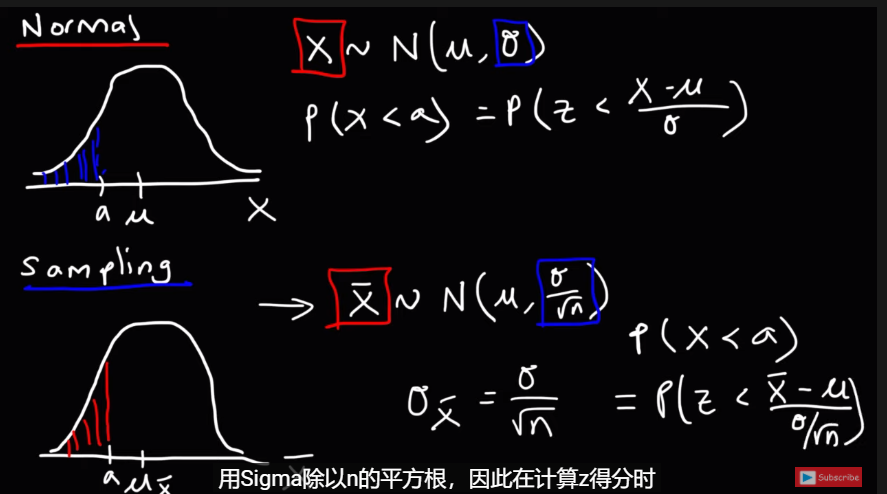 Normal
X ~ N(μ, σ)
P(X < a) = P(z < (X-μ)/σ)
a μ X
Sampling
→ X̄ ~ N(μ, σ/√n)
P(X < a)
σX̄ = σ/√n = P(z < (X̄-μ)/(σ/√n))
a μX̄
用Sigma除以n的平方根，因此在计算z得分时
Subscribe